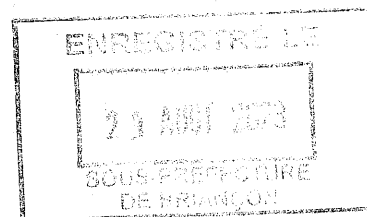 ENREGISTRÉ LE
AOUT
SOUS-PRÉFECTURE
DE BRIANÇON